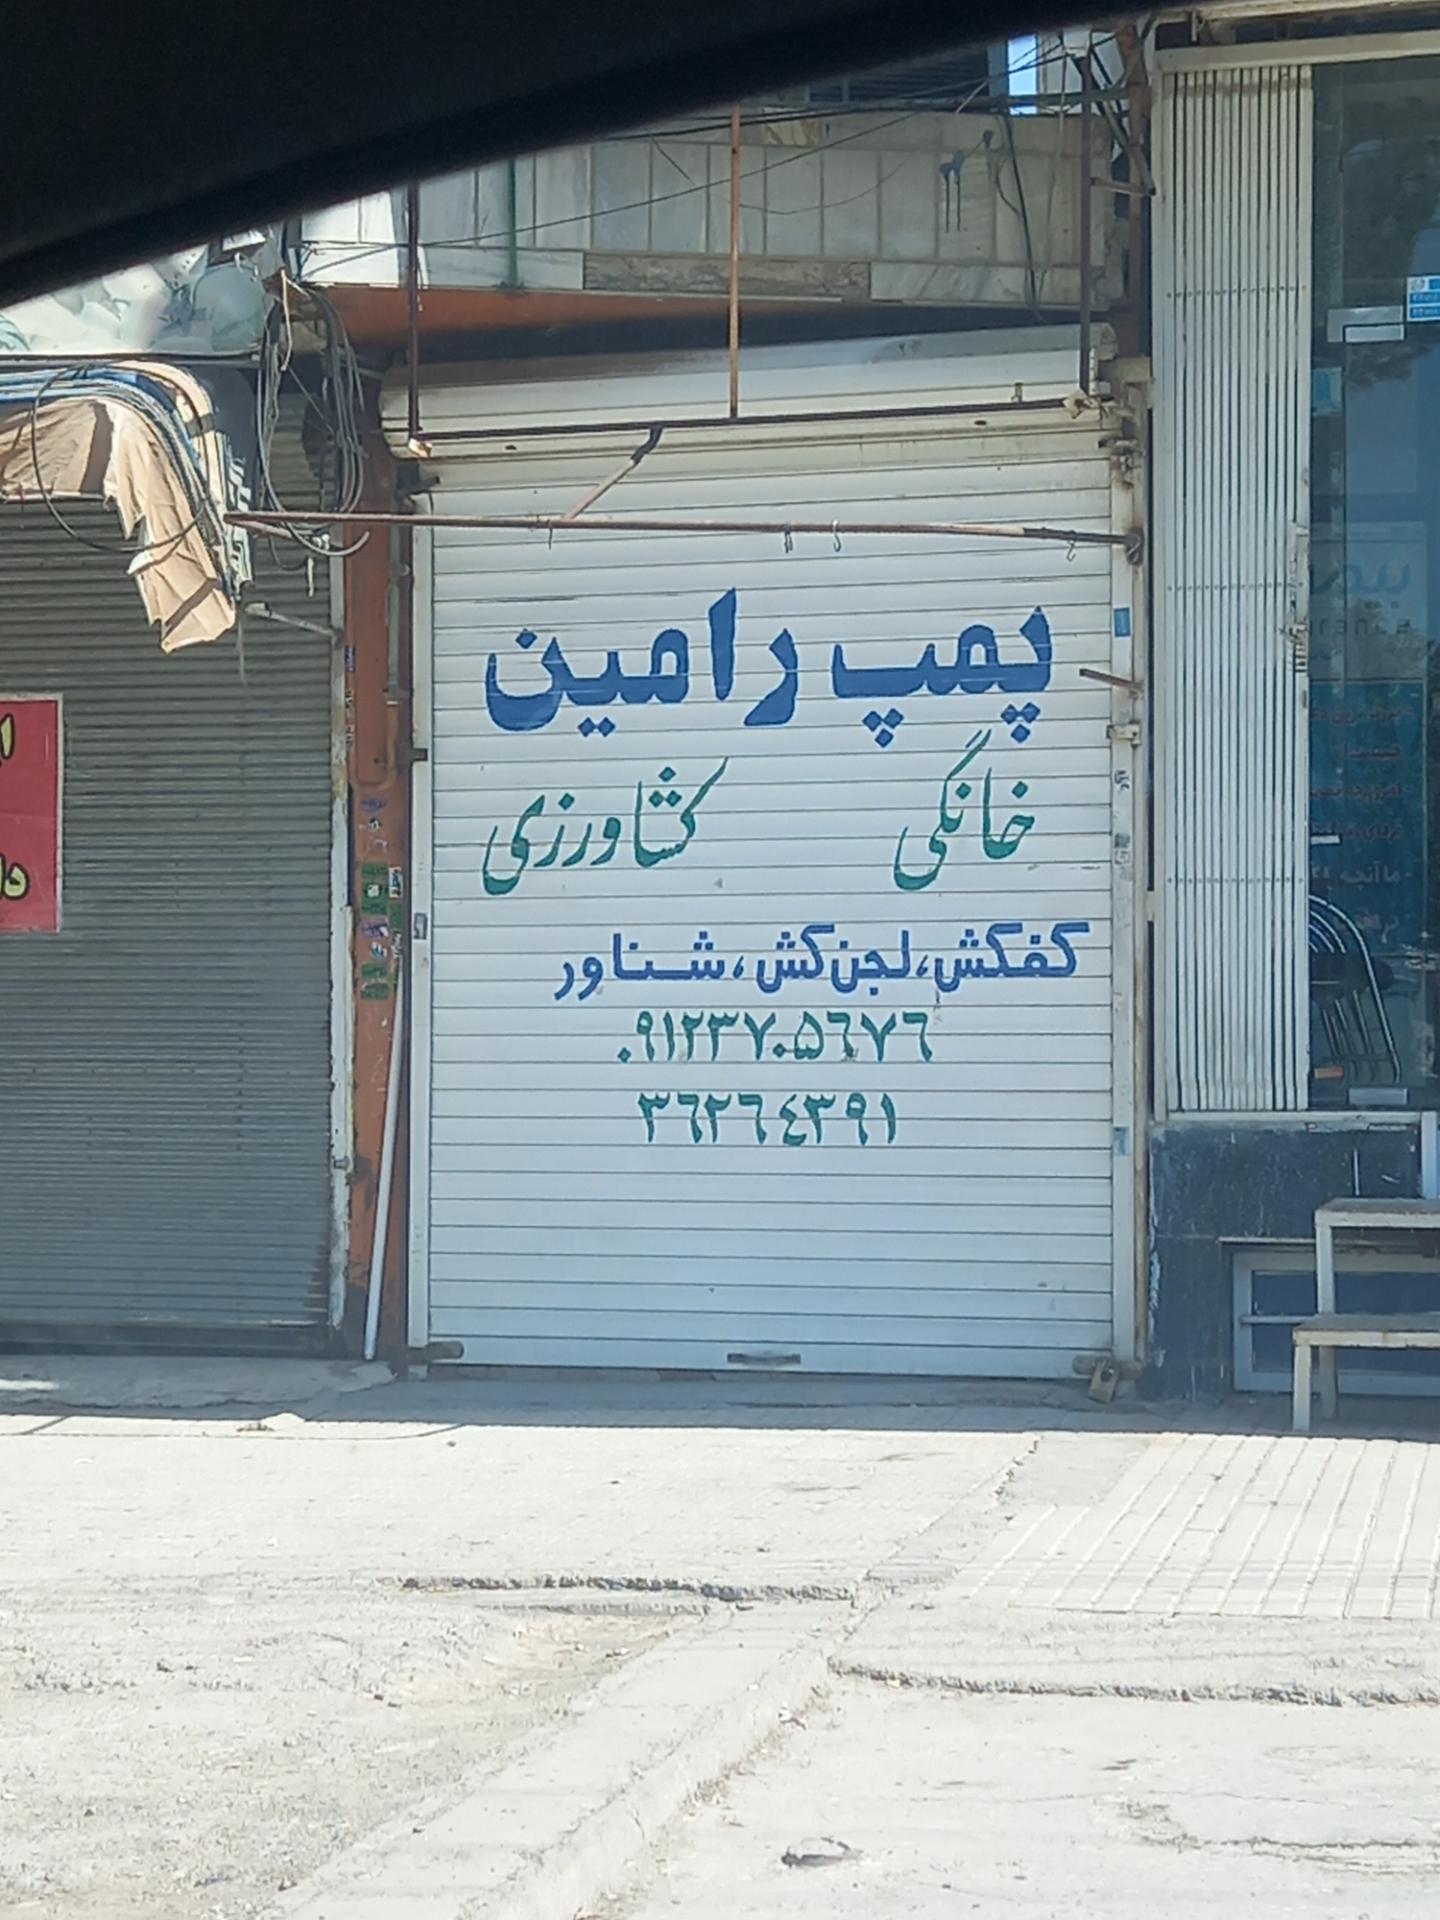 پمپ رامین
خانگی کشاورزی
کفکش، لجن کش، شناور
۰۹۱۲۳۷۰۵۶۷۶
۳۶۲۶۴۳۹۱